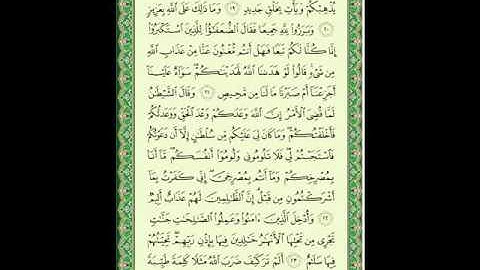 يُذْهِبْكُمْ وَيَأْتِ بِخَلْقٍ جَدِيدٍ ١٩ وَمَا ذَٰلِكَ عَلَى ٱللَّهِ بِعَزِيزٍ
٢٠ وَبَرَزُوا۟ لِلَّهِ جَمِيعًا فَقَالَ ٱلضُّعَفَـٰٓؤُا۟ لِلَّذِينَ ٱسْتَكْبَرُوٓا۟
إِنَّا كُنَّا لَكُمْ تَبَعًا فَهَلْ أَنتُم مُّغْنُونَ عَنَّا مِنْ عَذَابِ ٱللَّهِ
مِن شَىْءٍ ۚ قَالُوا۟ لَوْ هَدَىٰنَا ٱللَّهُ لَهَدَيْنَـٰكُمْ ۖ سَوَآءٌ عَلَيْنَآ
أَجَزِعْنَآ أَمْ صَبَرْنَا مَا لَنَا مِن مَّحِيصٍ ٢١ وَقَالَ ٱلشَّيْطَـٰنُ
لَمَّا قُضِىَ ٱلْأَمْرُ إِنَّ ٱللَّهَ وَعَدَكُمْ وَعْدَ ٱلْحَقِّ وَوَعَدتُّكُمْ
فَأَخْلَفْتُكُمْ ۖ وَمَا كَانَ لِىَ عَلَيْكُم مِّن سُلْطَـٰنٍ إِلَّآ أَن دَعَوْتُكُمْ
فَٱسْتَجَبْتُمْ لِى ۖ فَلَا تَلُومُونِى وَلُومُوٓا۟ أَنفُسَكُم ۖ مَّآ أَنَا۠
بِمُصْرِخِكُمْ وَمَآ أَنتُم بِمُصْرِخِىَّ ۖ إِنِّى كَفَرْتُ بِمَآ
أَشْرَكْتُمُونِ مِن قَبْلُ ۗ إِنَّ ٱلظَّـٰلِمِينَ لَهُمْ عَذَابٌ أَلِيمٌ
٢٢ وَأُدْخِلَ ٱلَّذِينَ ءَامَنُوا۟ وَعَمِلُوا۟ ٱلصَّـٰلِحَـٰتِ جَنَّـٰتٍ
تَجْرِى مِن تَحْتِهَا ٱلْأَنْهَـٰرُ خَـٰلِدِينَ فِيهَا بِإِذْنِ رَبِّهِمْ ۖ تَحِيَّتُهُمْ
فِيهَا سَلَـٰمٌ ٢٣ أَلَمْ تَرَ كَيْفَ ضَرَبَ ٱللَّهُ مَثَلًا كَلِمَةً طَيِّبَةً